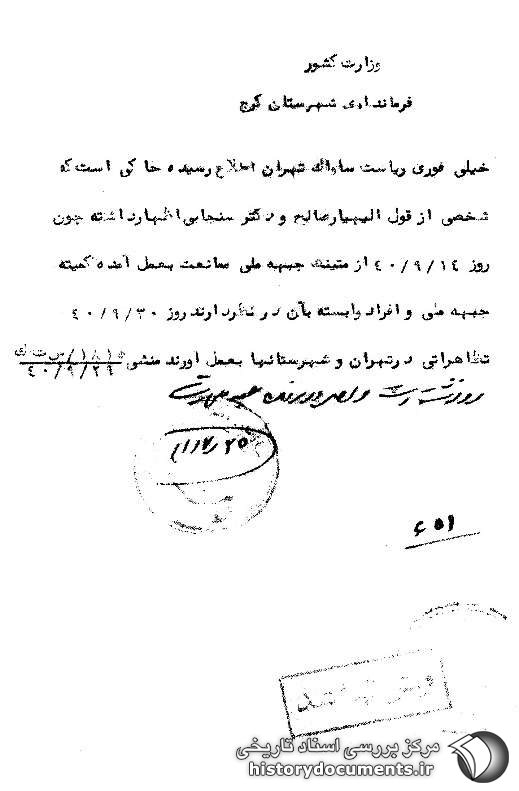 وزارت کشور
فرمانداری شهرستان کرج
خیلی فوری ریاست ساواک تهران اطلاع رسیده حاکی است که
شخصی از قول الهیار صالح و دکتر سنجابی اظهار داشته چون
روز ۴۰/۹/۱۴ از متینگ جبهه ملی ممانعت بعمل آمده کمیته
جبهه ملی و افراد وابسته بآن در نظر دارند روز ۴۰/۹/۳۰
تظاهراتی در تهران و شهرستانها بعمل آورند منشی
۴۰/۹/۲۹
۶۵۱
مرکز بررسی اسناد تاریخی
historydocuments.ir